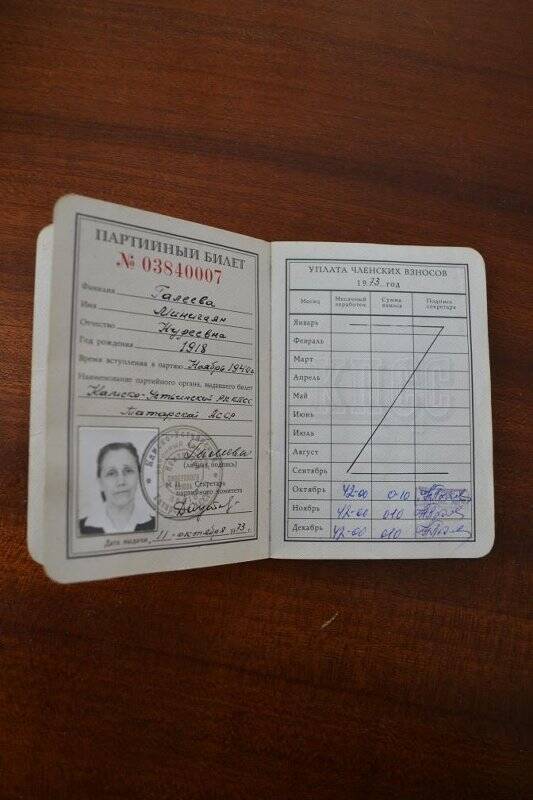 ПАРТИЙНЫЙ БИЛЕТ
№ 03840007
Фамилия Галеева
Имя Минигаян
Отчество Кудеевна
Год рождения 1918
Время вступления в партию Ноябрь 1940г
Наименование партийного органа, выдавшего билет
Камско-Устьинский РК КПСС
Татарской АССР
(личная подпись)
М. П. Секретарь
партийного комитета
Дата выдачи 11 октября 1973 г.
УПЛАТА ЧЛЕНСКИХ ВЗНОСОВ
1973 год
Месяц Месячный заработок Сумма взноса Подпись секретаря
Январь
Февраль
Март
Апрель
Май
Июнь
Июль
Август
Сентябрь
Октябрь 42-00 0-10
Ноябрь 42-00 0-10
Декабрь 42-00 0-10
КПСС